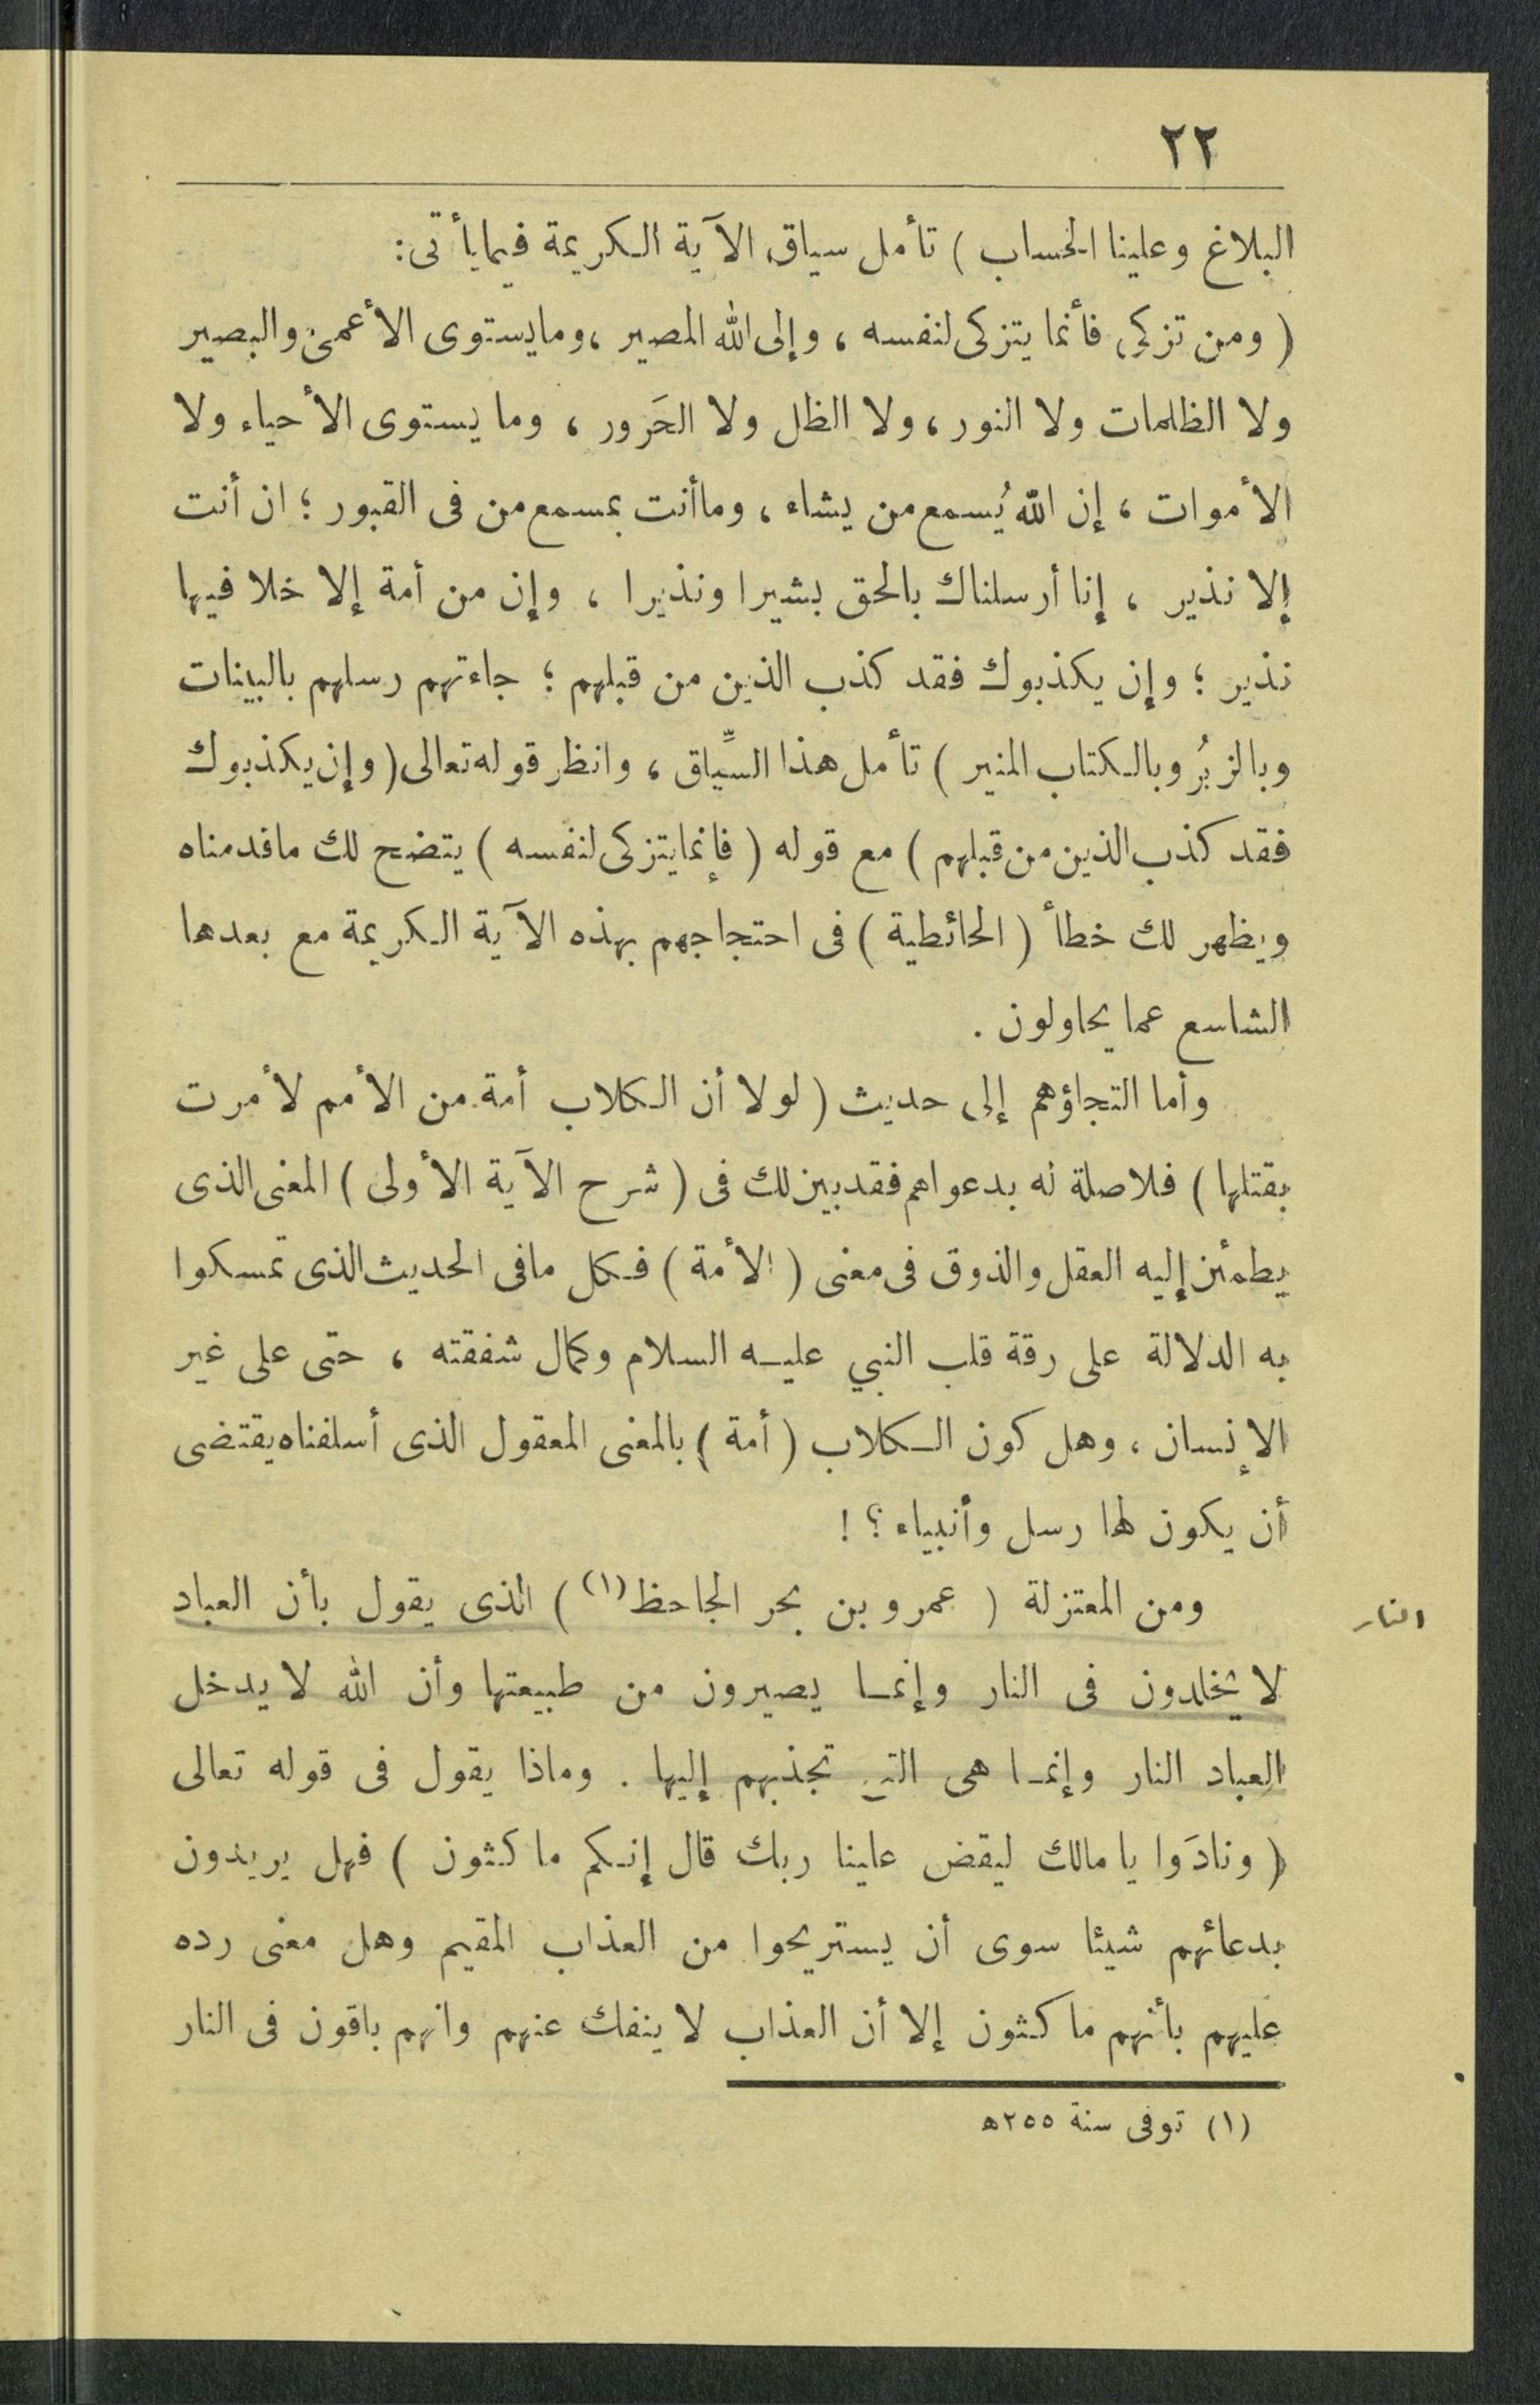 ٢٢
البلاغ وعلينا الحساب ) تأمل سياق الآية الكريمة فيما يأتى :
( ومن تزكى فأنما يتزكى لنفسه ، وإلى الله المصير ، وما يستوى الأعمى والبصير
ولا الظلمات ولا النور ، ولا الظل ولا الحَرور ، وما يستوى الأحياء ولا
الأموات ، إن الله يُسمع من يشاء ، وما أنت بمسمع من فى القبور ؛ ان أنت
إلا نذير ، إنا أرسلناك بالحق بشيرا ونذيرا ، وإن من أمة إلا خلا فيها
نذير ؛ وإن يكذبوك فقد كذب الذين من قبلهم ؛ جاءتهم رسلهم بالبينات
وبالزبُر وبالكتاب المنير ) تأمل هذا السِّياق ، وانظر قوله تعالى ( وإن يكذبوك
فقد كذب الذين من قبلهم ) مع قوله ( فإنما يتزكى لنفسه ) يتضح لك ما قدمناه
ويظهر لك خطأ ( الحائطية ) فى احتجاجهم بهذه الآية الكريمة مع بعدها
الشاسع عما يحاولون .
وأما التجاؤهم إلى حديث ( لولا أن الكلاب أمة من الأمم لأمرت
بقتلها ) فلا صلة له بدعواهم فقد بين لك فى ( شرح الآية الأولى ) المعنى الذى
يطمئن إليه العقل والذوق فى معنى ( الأمة ) فكل ما فى الحديث الذى تمسكوا
به الدلالة على رقة قلب النبي عليه السلام وكمال شفقته ، حتى على غير
الإنسان ، وهل كون الكلاب ( أمة ) بالمعنى المعقول الذى أسلفناه يقتضى
أن يكون لها رسل وأنبياء ؟ !
ومن المعتزلة ( عمرو بن بحر الجاحظ (١) ) الذى يقول بأن العباد
النار
لا يخلدون فى النار وإنما يصيرون من طبيعتها وأن الله لا يدخل
العباد النار وإنما هى التى تجذبهم إليها . وماذا يقول فى قوله تعالى
( ونادَوا يا مالك ليقض علينا ربك قال إنكم ماكثون ) فهل يريدون
بدعائهم شيئا سوى أن يستريحوا من العذاب المقيم وهل معنى رده
عليهم بأنهم ماكثون إلا أن العذاب لا ينفك عنهم وانهم باقون فى النار
(١) توفى سنة ٢٥٥ه